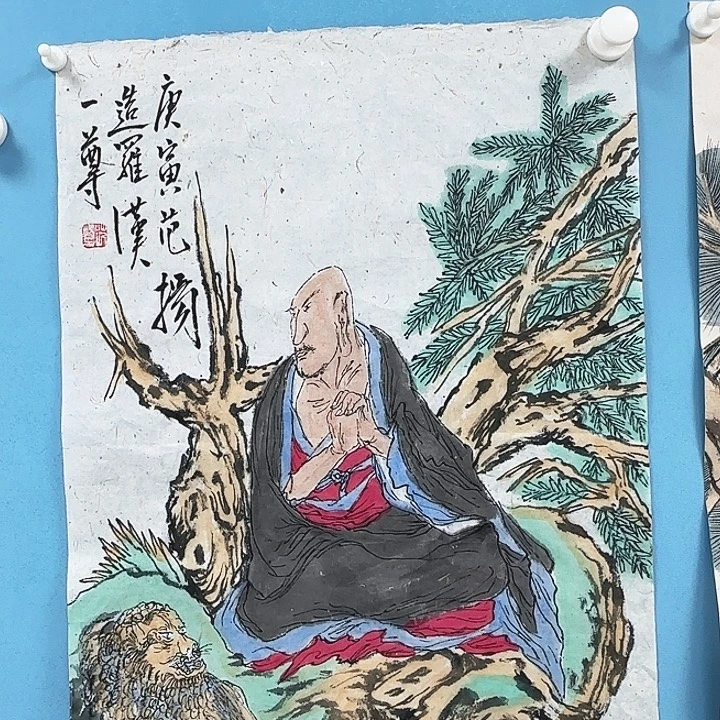 庚寅范扬
造羅漢
一尊